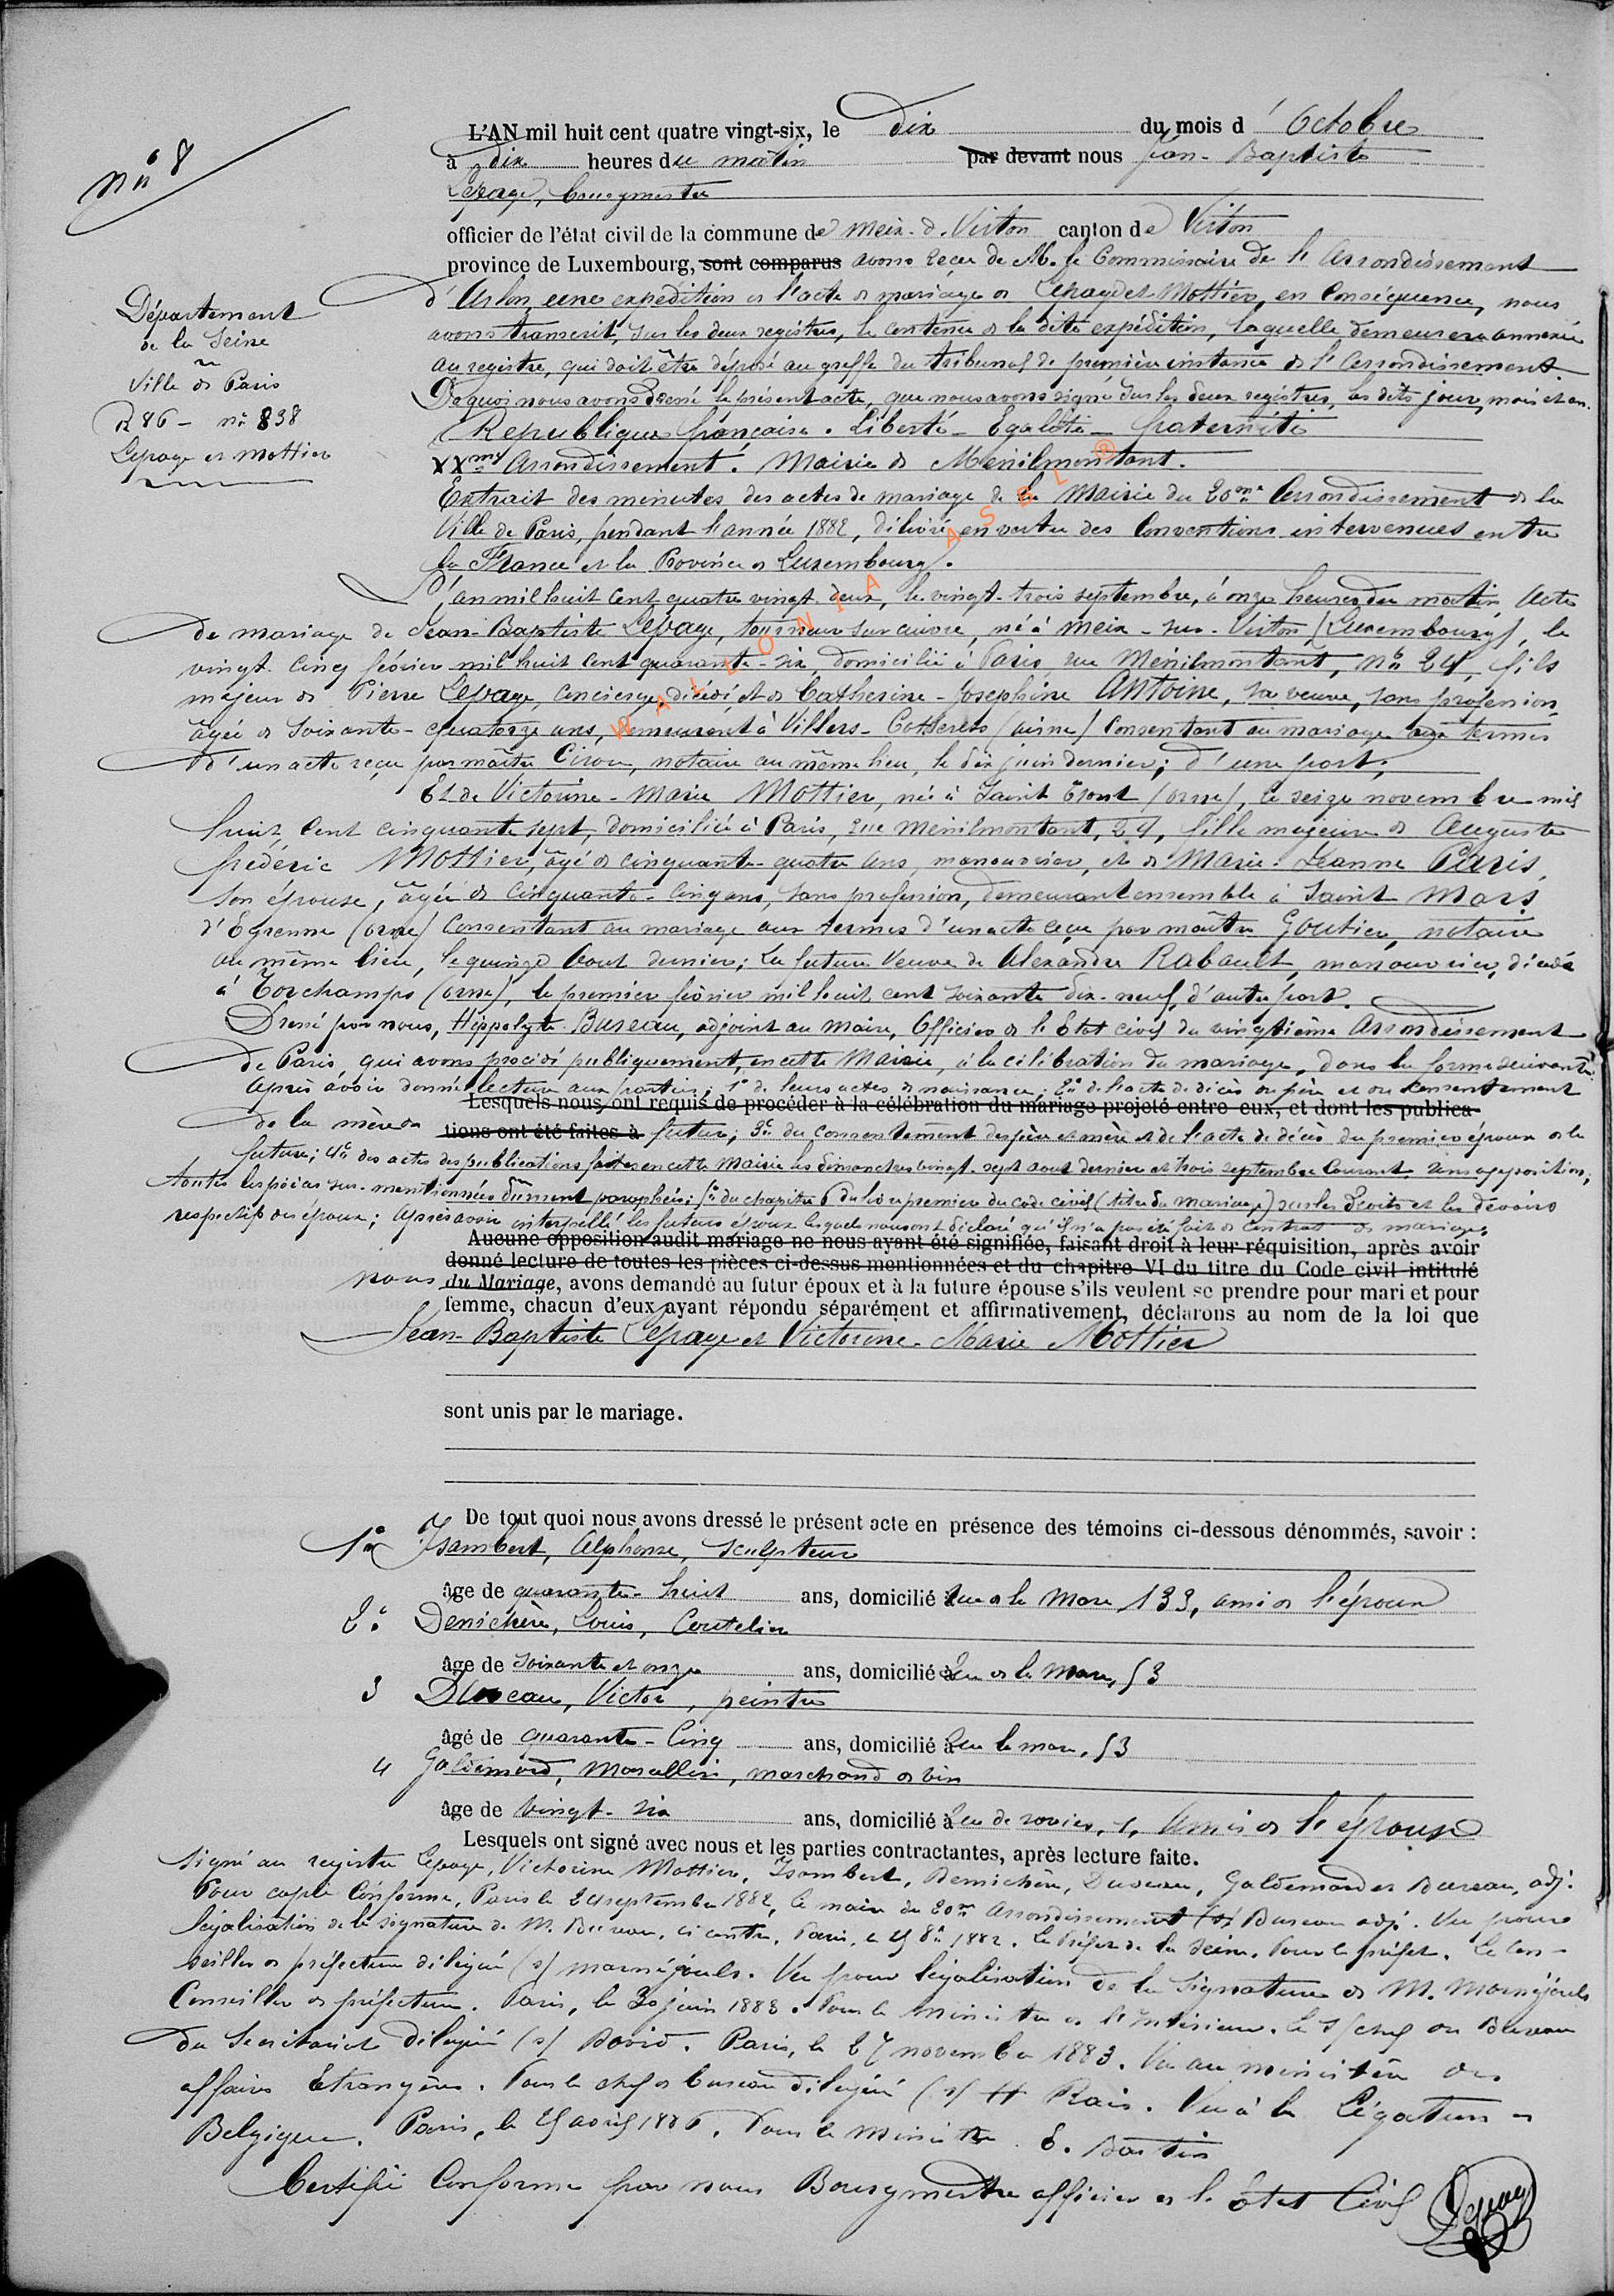 n° 8
Département
de la Seine
Ville de Paris
R 86 - n° 838
Lepage et Mottier
L'AN mil huit cent quatre vingt-six, le dix du mois d'Octobre
à dix heures du matin par devant nous Jean-Baptiste
Lepage, bourgmestre
officier de l'état civil de la commune de Meix-d.-Virton canton de Virton
province de Luxembourg, sont comparus avons reçu de M. le Commissaire de l'Arrondissement
d'Arlon, une expédition de l'acte de mariage de Lepage et Mottier, en conséquence, nous
avons transcrit, sur les deux registres, le contenu de la dite expédition, laquelle demeurera annexée
au registre, qui doit être déposé au greffe du tribunal de première instance de l'arrondissement.
De quoi nous avons dressé le présent acte, que nous avons signé sur les deux registres, les dits jour, mois et an.
République française. Liberté - Egalité - fraternité
XXme Arrondissement. Mairie de Ménilmontant.
Extrait des minutes des actes de mariage de la Mairie du 20me Arrondissement de la
Ville de Paris, pendant l'année 1882, délivré en vertu des Conventions intervenues entre
la France et la Province de Luxembourg.
L'an mil huit cent quatre vingt-deux, le vingt-trois septembre, à onze heures du matin, Acte
de mariage de Jean-Baptiste Lepage, tourneur sur cuivre, né à Meix-sur-Virton (Luxembourg), le
vingt-cinq février mil huit cent quarante-six, domicilié à Paris, rue Ménilmontant, n° 24, fils
majeur de Pierre Lepage, concierge, décédé, et de Catherine-Joséphine Antoine, sa veuve, sans profession,
âgée de soixante-quatorze ans, demeurant à Villers-Cotterets (aisne) consentant au mariage aux termes
d'un acte reçu par maître Cirou, notaire au même lieu, le dix juin dernier; d'une part;
Et de Victorine-Marie Mottier, née à Saint (orne), le seize novembre mil
huit cent cinquante sept, domiciliée à Paris, rue Ménilmontant, 24, fille majeure de Auguste
frédéric Mottier, âgé de cinquante-quatre ans, manouvrier, et de Marie-Jeanne Paris,
son épouse, âgée de cinquante-cinq ans, sans profession, demeurant ensemble à Saint Mars
d'Egrenne (orne) consentant au mariage aux termes d'un acte reçu par maître Goutier, notaire
au même lieu, le quinze Aout dernier; La future Veuve de Alexandre Rabault, manouvrier, décédé
à Torchamps (orne), le premier février mil huit cent soixante dix-neuf, d'autre part.
Dressé par nous, Hippolyte Bureau, adjoint au maire, Officier de l'Etat civil du vingtième Arrondissement
de Paris, qui avons procédé publiquement, en cette Mairie, à la célébration du mariage, dans la forme suivante.
Après avoir donné lecture aux parties; 1° de leurs actes de naissance; 2° de l'acte de décès du père et du consentement
Lesquels nous ont requis de procéder à la célébration du mariage projeté entre eux, et dont les publica-
de la mère du tions ont été faites à futur; 3° du consentement des père et mère et de l'acte de décès du premier époux de la
future; 4° des actes des publications faites en cette Mairie les dimanches vingt-sept aout dernier et trois septembre courant, sans opposition;
toutes les pièces sus-mentionnées dûment paraphées; 5° du chapitre 6 du livre premier du code civil (titre du mariage) sur les droits et les devoirs
respectifs des époux; Après avoir interpellé les futurs époux lesquels nous ont déclaré qu'il n'a pas été fait de contrat de mariage,
Aucune opposition audit mariage ne nous ayant été signifiée, faisant droit à leur réquisition, après avoir
donné lecture de toutes les pièces ci-dessus mentionnées et du chapitre VI du titre du Code civil intitulé
nous du Mariage, avons demandé au futur époux et à la future épouse s'ils veulent se prendre pour mari et pour
femme, chacun d'eux ayant répondu séparément et affirmativement, déclarons au nom de la loi que
Jean-Baptiste Lepage et Victorine-Marie Mottier
sont unis par le mariage.
De tout quoi nous avons dressé le présent acte en présence des témoins ci-dessous dénommés, savoir :
1° Isambert, Alphonse, sculpteur
âge de quarante-huit ans, domicilié à rue de la Mare, 133, ami de l'époux
2° Denichère, Louis, Coutelier
âge de soixante et onze ans, domicilié à rue de la Mare, 53
3 Duseau, Victor, peintre
âgé de quarante-cinq ans, domicilié à rue la mare, 53
4 Galdemard, Marcellin, marchand de vin
âge de vingt-six ans, domicilié à rue de 1, Amis de l'épouse
Lesquels ont signé avec nous et les parties contractantes, après lecture faite.
Signé au registre Lepage, Victorine Mottier, Isambert, Denichère, Duseau, Galdemard et Bureau, adj.
Pour copie conforme, Paris le 24 septembre 1882, Le maire du 20me Arrondissement (s) Bureau adj. Vu pour
légalisation de la signature de M. Bureau, ci contre, Paris, le 1882. Le Préfet de la Seine. Pour le préfet. Le Con-
seiller de préfecture délégué (s) Marnéjouls. Vu pour légalisation de la signature de M. Marnéjouls
Conseiller de préfecture. Paris, le 30 juin 1883. Pour le ministre de l'Intérieur. Le s/chef du Bureau
du Secrétariat délégué (s) David. Paris, le 27 novembre 1883. Vu au ministère des
affaires Etrangères. Pour le chef de bureau délégué (s) H Rais. Vu à la Légation de
Belgique. Paris, le avril 1886. Pour le Ministre. E. Bastin
Certifié Conforme par nous Bourgmestre officier de l'état Civil
Lepage
WALLONIA ASBL ®